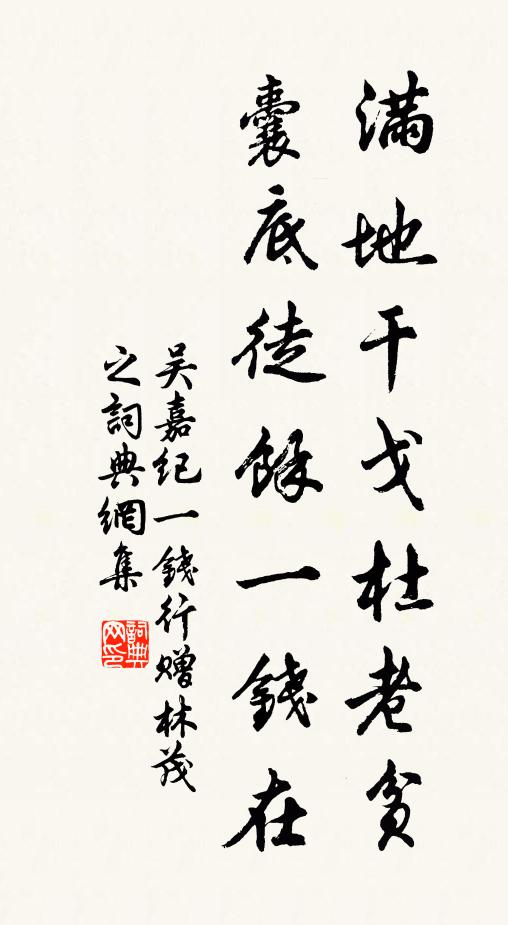 滿地干戈杜老貧
囊底徒餘一錢在
吴嘉纪一錢行赠林茂
之詞典網集
詞典网印